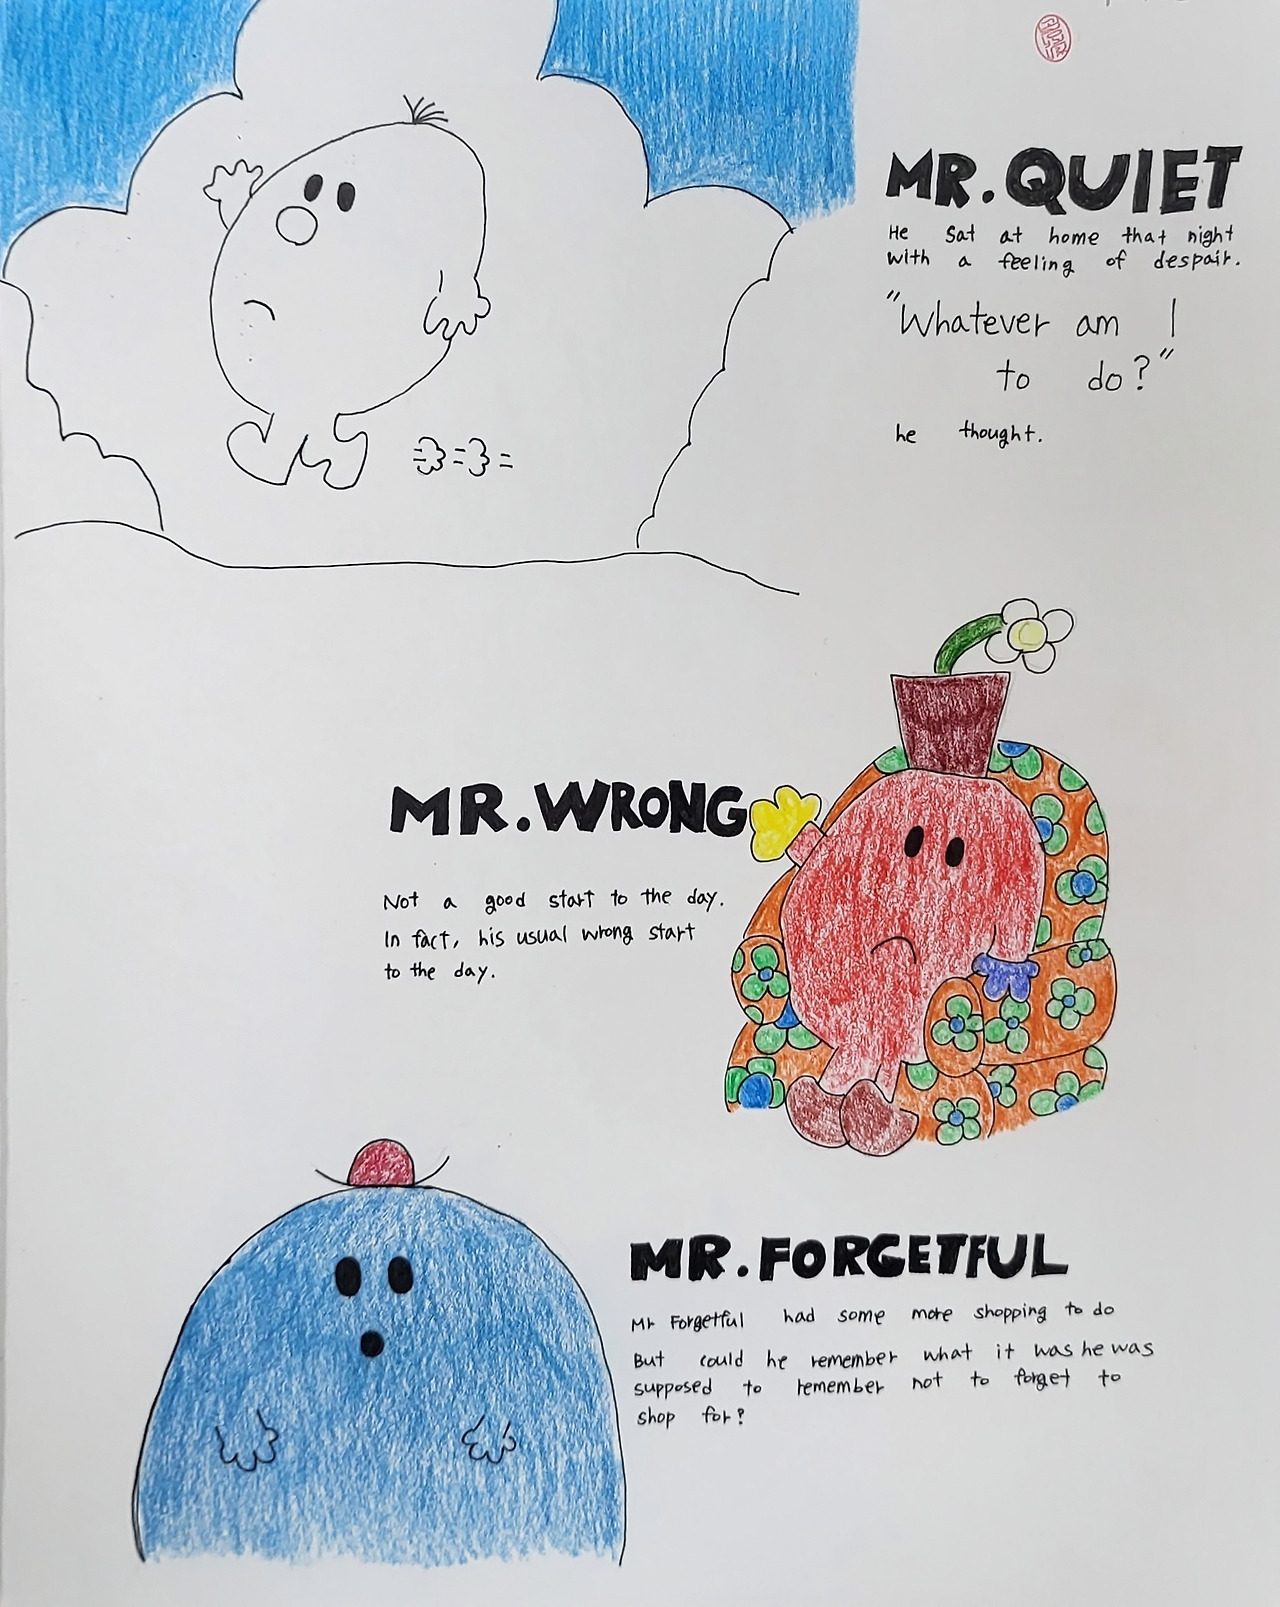 MR. QUIET
He sat at home that night
with a feeling of despair.
"Whatever am I
to do?"
he thought.
MR. WRONG
Not a good start to the day.
In fact, his usual wrong start
to the day.
MR. FORGETFUL
Mr Forgetful had some more shopping to do
But could he remember what it was he was
supposed to remember not to forget to
shop for?